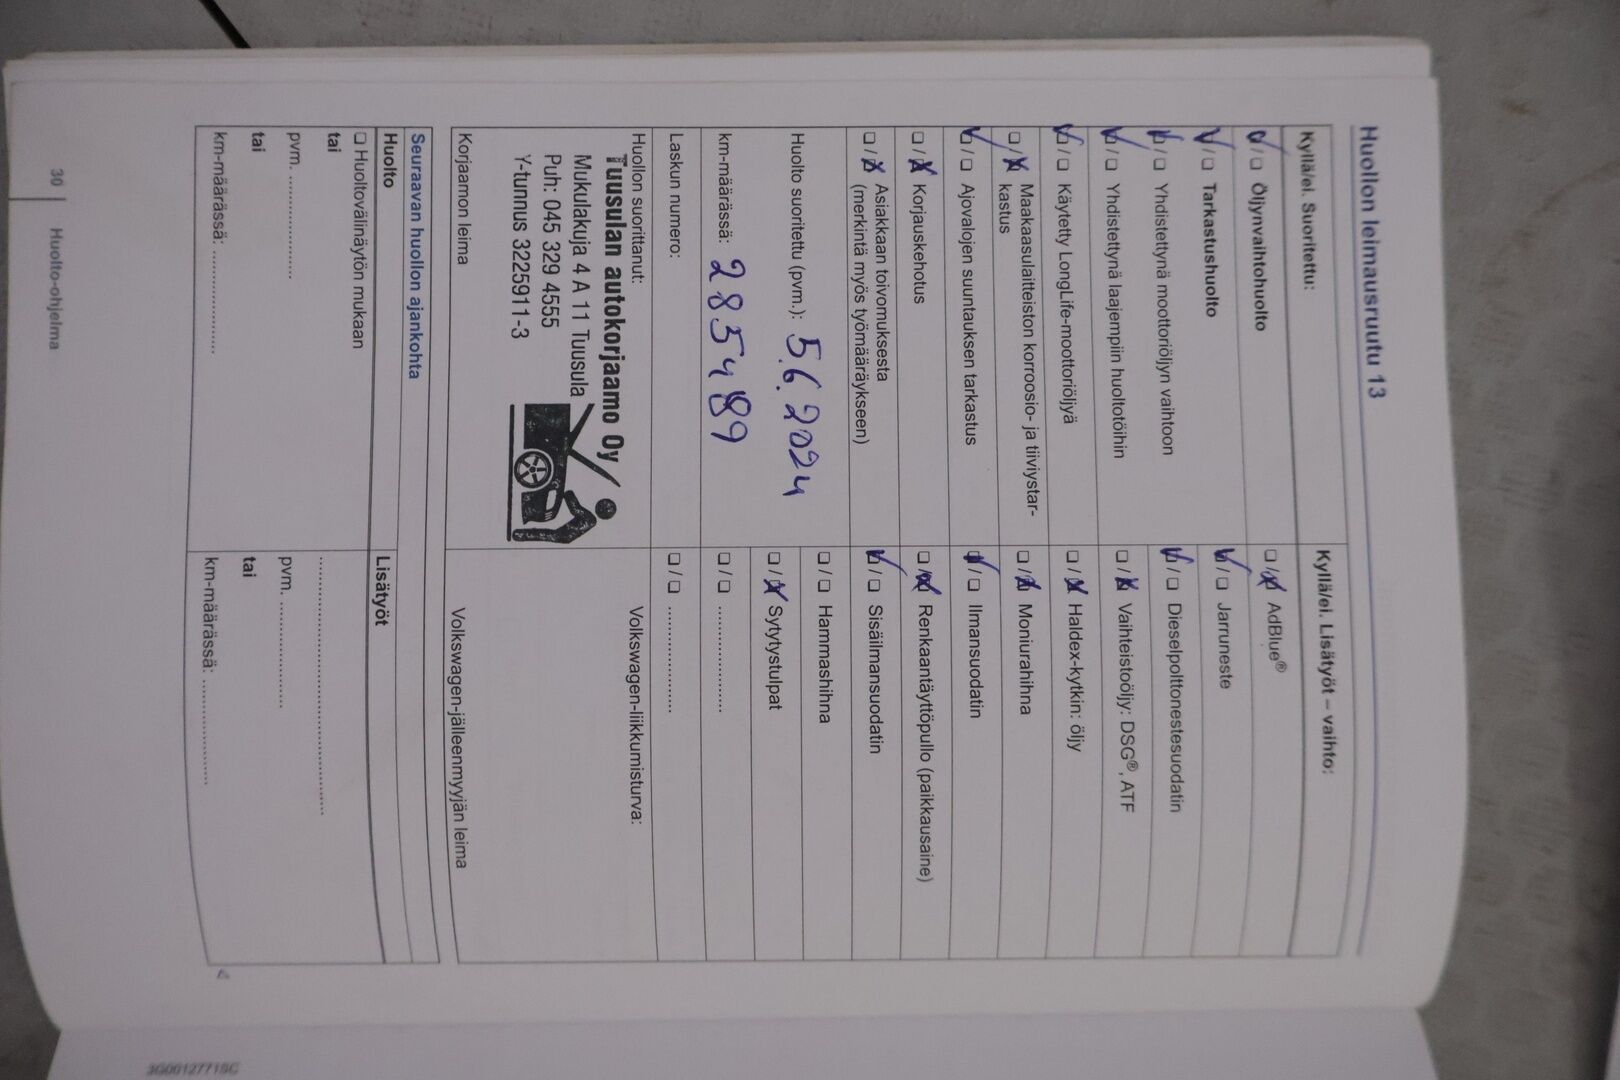 Huollon leimausruutu 13
Kyllä/ei. Suoritettu:
☑ / ☐ Öljynvaihtohuolto
☑ / ☐ Tarkastushuolto
☑ / ☐ Yhdistettynä moottoriöljyn vaihtoon
☑ / ☐ Yhdistettynä laajempiin huoltotöihin
☑ / ☐ Käytetty LongLife-moottoriöljyä
☐ / ☒ Maakaasulaitteiston korroosio- ja tiiviystar-
kastus
☑ / ☐ Ajovalojen suuntauksen tarkastus
☐ / ☒ Korjauskehotus
☐ / ☒ Asiakkaan toivomuksesta
(merkintä myös työmääräykseen)
Huolto suoritettu (pvm.): 5.6.2024
km-määrässä: 285489
Laskun numero:
Huollon suorittanut:
Tuusulan autokorjaamo Oy
Mukulakuja 4 A 11 Tuusula
Puh: 045 329 4555
Y-tunnus 3225911-3
Korjaamon leima
Kyllä/ei. Lisätyöt – vaihto:
☐ / ☒ AdBlue®
☑ / ☐ Jarruneste
☑ / ☐ Dieselpolttonestesuodatin
☐ / ☒ Vaihteistoöljy: DSG®, ATF
☐ / ☒ Haldex-kytkin: öljy
☐ / ☒ Moniurahihna
☑ / ☐ Ilmansuodatin
☐ / ☒ Renkaantäyttöpullo (paikkausaine)
☑ / ☐ Sisäilmansuodatin
☐ / ☐ Hammashihna
☐ / ☒ Sytytystulpat
☐ / ☐ ....................
☐ / ☐ ....................
Volkswagen-liikkumisturva:
Volkswagen-jälleenmyyjän leima
Seuraavan huollon ajankohta
Huolto
☐ Huoltovälinäytön mukaan
tai
pvm. ....................
tai
km-määrässä: ....................
Lisätyöt
..................................................
pvm. ....................
tai
km-määrässä: ....................
30 Huolto-ohjelma
3G0012771SC